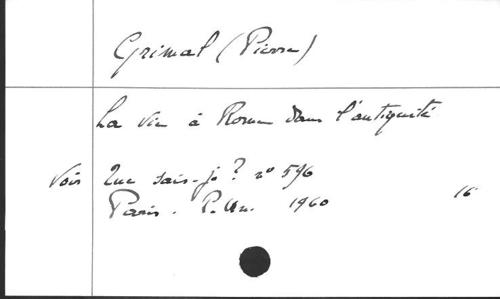 Grimal (Pierre)
La vie à Rome dans l'antiquité
Voir Que sais-je? n° 596
Paris. P.Un. 1960 16